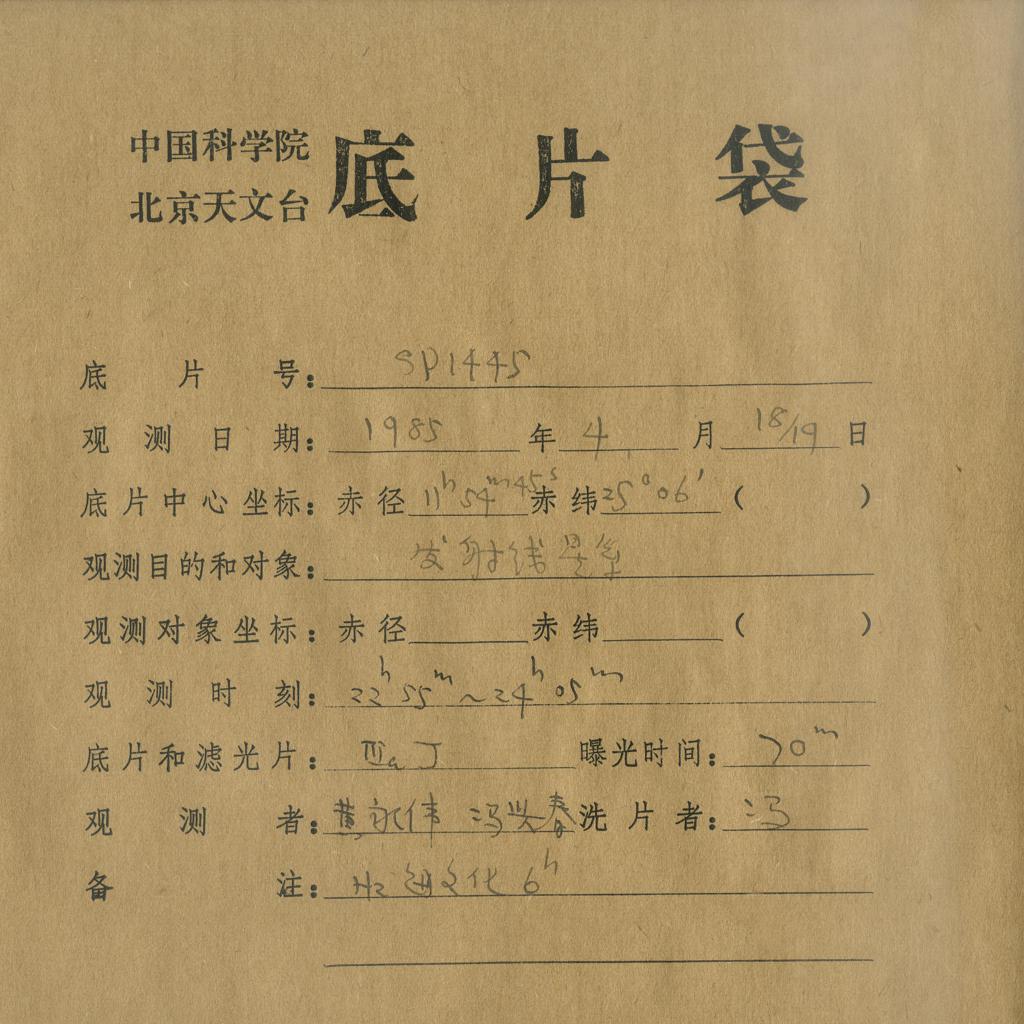 中国科学院
北京天文台 底片袋
底片号: SP1445
观测日期: 1985 年 4 月 18/19 日
底片中心坐标: 赤径 11h54m45s 赤纬 25°06′ ( )
观测目的和对象: 发射线星系
观测对象坐标: 赤径 赤纬 ( )
观测时刻: 22h55m~24h05m
底片和滤光片: IIIaJ 曝光时间: 70m
观测者: 黄永伟 冯兴春 洗片者: 冯
备注: H2 敏化 6h